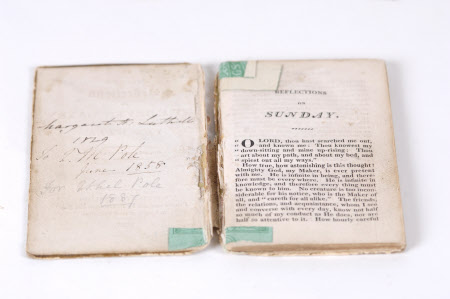 Margarett
1829
Pole
1858
Pole
1887
REFLECTIONS
ON
SUNDAY.
"O LORD, thou hast searched me out,
" and known me: Thou knowest my
" down-sitting and mine up-rising: Thou
" art about my path, and about my bed, and
" spiest out all my ways."
How true, how astonishing is this thought!
Almighty God, my Maker, is ever present
with me. He is infinite in being, and there-
fore must be every where. He is infinite in
knowledge, and therefore every thing must
be known to him. No creature is too incon-
siderable for his notice, who is the Maker of
all, and " careth for all alike." The friends,
the relations, and acquaintance, whom I see
and converse with every day, know not half
so much of my conduct as He does, nor are
half so attentive to it. How hourly careful